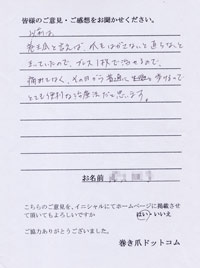 皆様のご意見・ご感想をお聞かせください。
以前は、
巻き爪と言えば、爪をはがさないと直らないと
思っていたので、プレート1枚で治せるので、
痛みもなく、その日から普通に生活も歩けるって
とても便利な治療法だと思います。
お名前
こちらのご意見を、イニシャルにてホームページに掲載させ
て頂いてもよろしいですか はい・いいえ
ご協力ありがとうございました。
巻き爪ドットコム